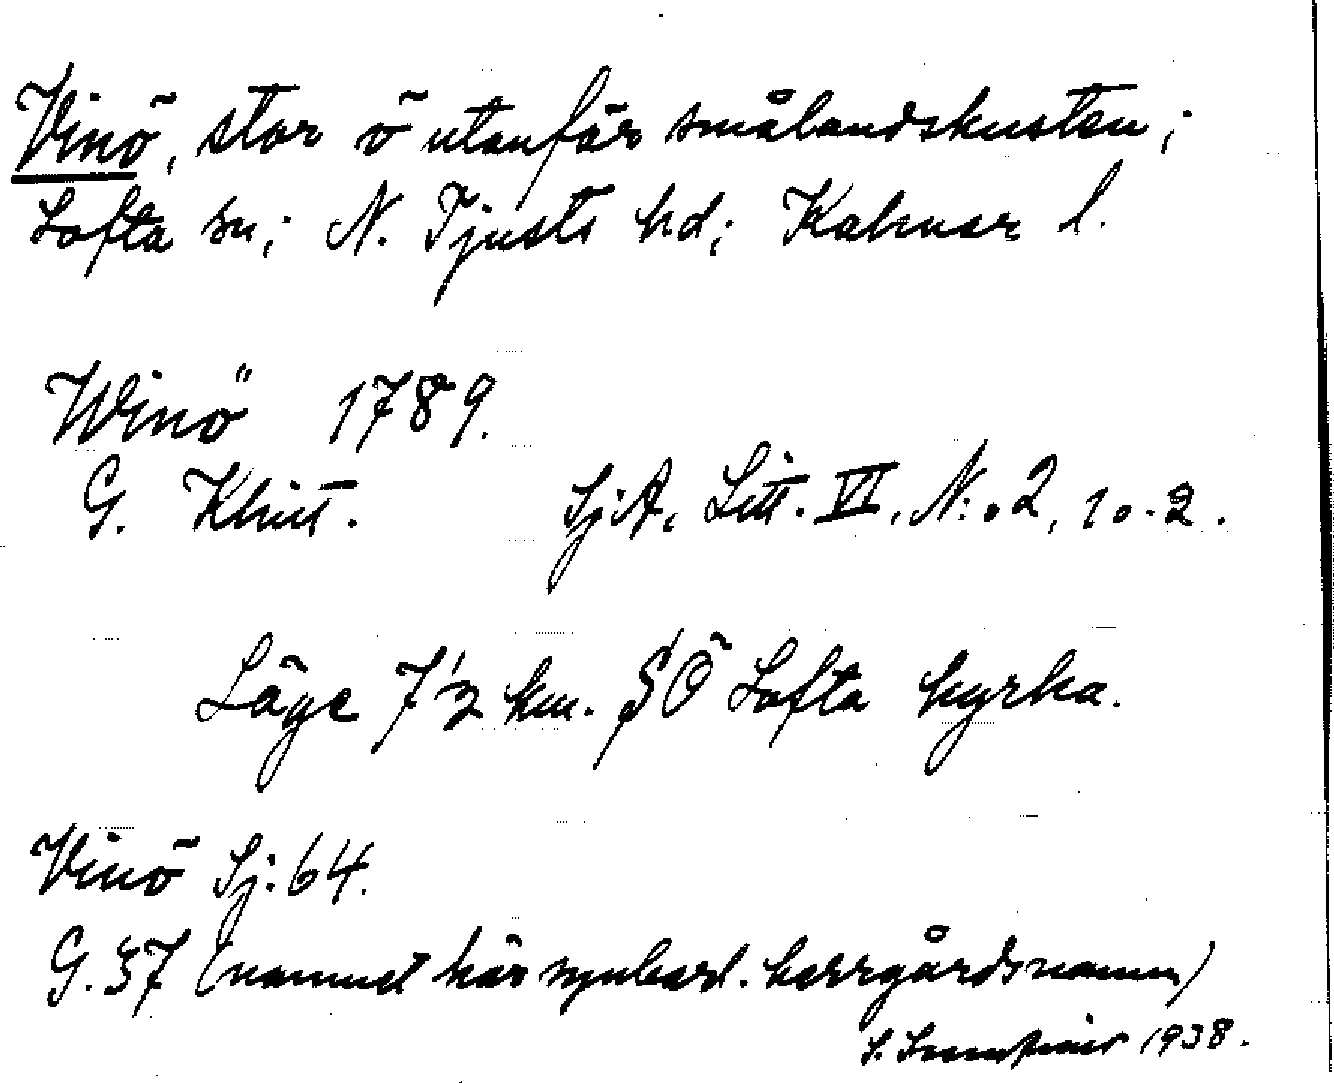 Vinö, stor ö utanför smålandskusten;
Lofta sn; N. Tjusts hd; Kalmar l.
Winö 1789.
G. Klint. SjA, Litt. VI, N:o 2, 10.2.
Läge 7½ km. SÖ Lofta kyrka.
Vinö Sj. 64.
G. 37 (namnet här synbarl. herrgårdsnamn)
S. 1938.